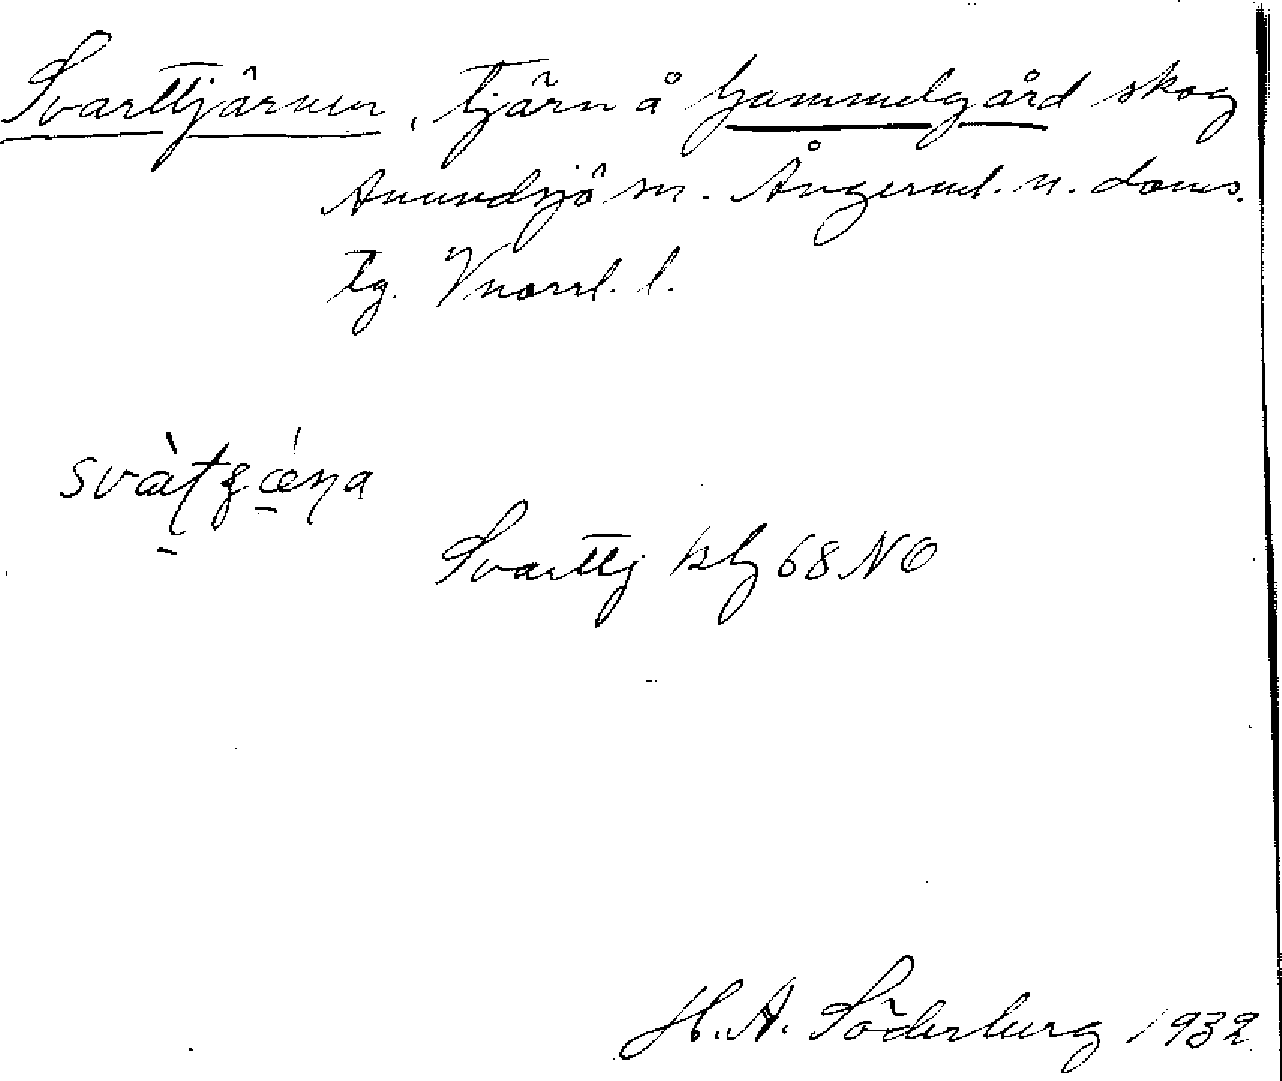 Svarttjärnen, tjärn å Gammelgård skog
Anundsjö sn. Ångerml. n. doms.
tg. Vnorrl. l.
Svarttj kbl 68 NO
H. A. Söderberg 1932